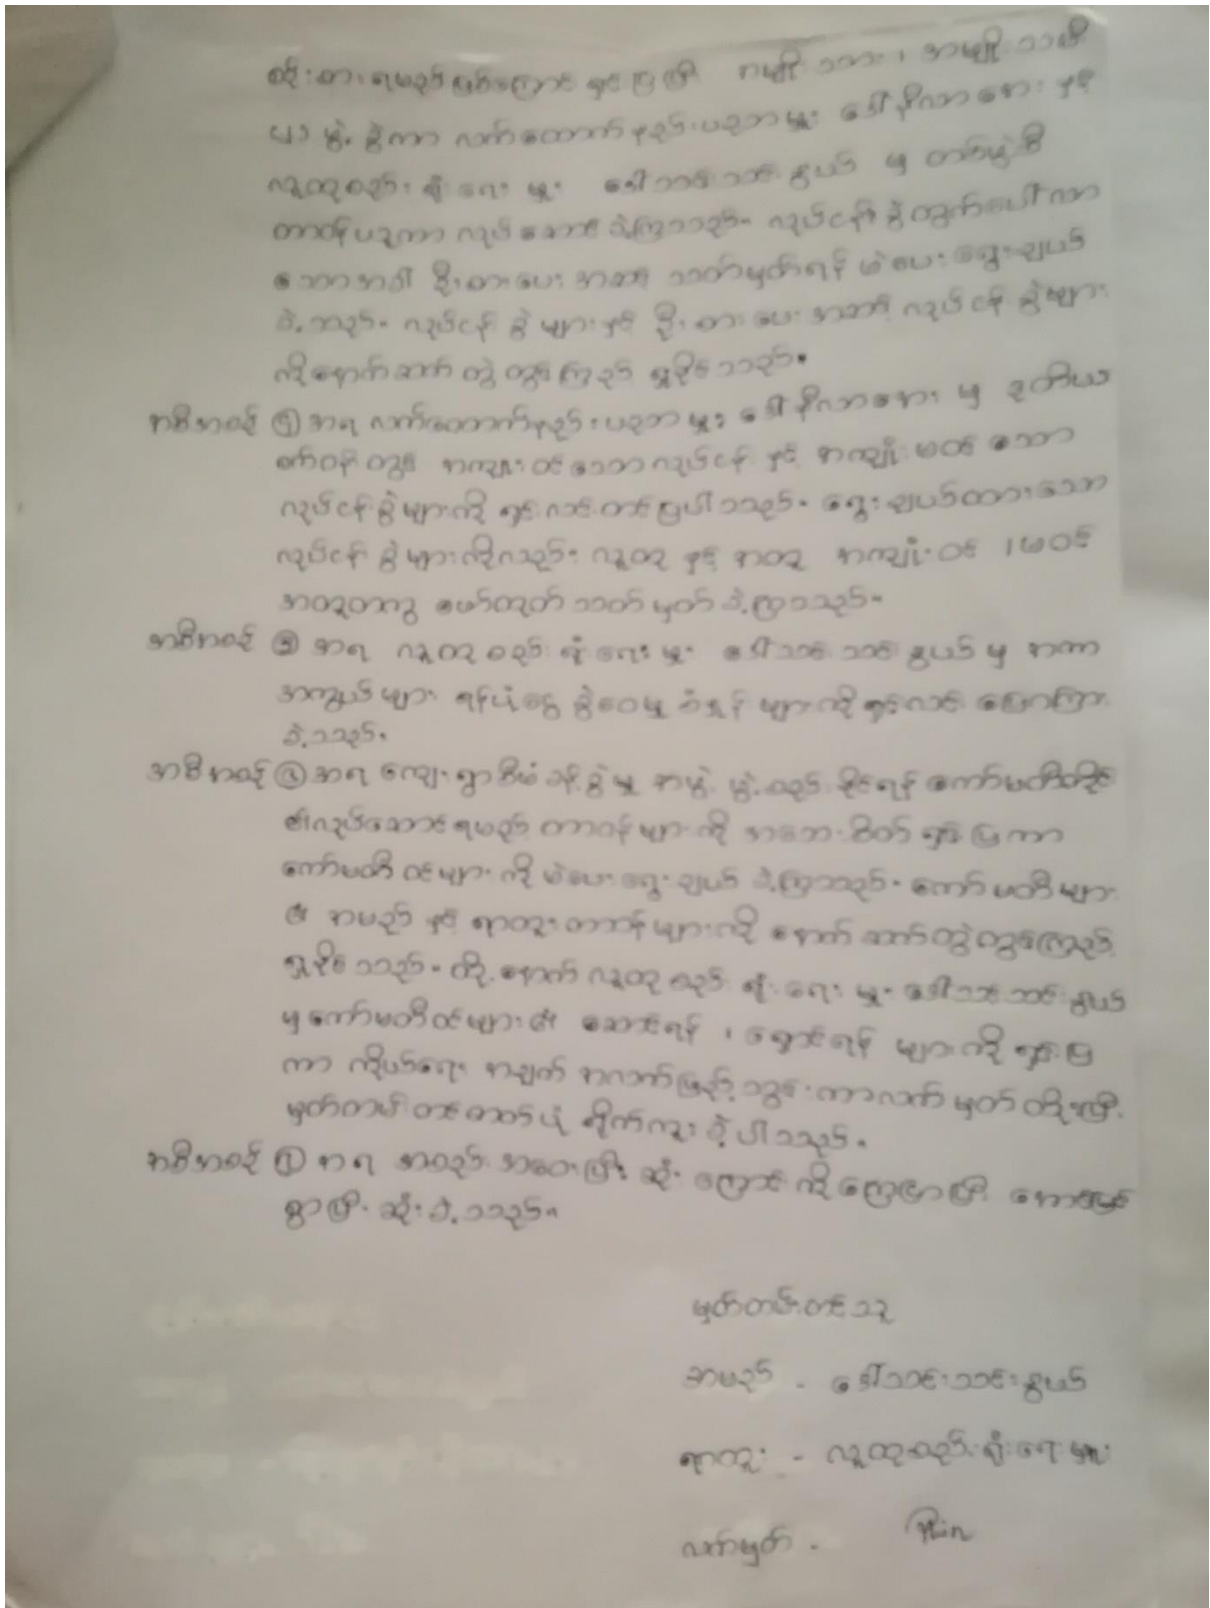 စိုးစားရမည်ဖြစ်ကြောင်း ရှင်းပြပြီး အမျိုးသား၊ အမျိုးသမီး
၍ ဖွဲ့ ခွဲကာ လက်ထောက်နည်းပညာမှူး ဒေါ်နီလာအေး နှင့်
လူထုစည်းရုံးရေးမှူး ဒေါ်သင်းသင်းနွယ် မှ တစ်ဖွဲ့စီ
တာဝန်ယူကာ လုပ်ဆောင်ခဲ့ကြသည်။ လုပ်ငန်းခွဲထွက်ပေါ်လာ
သောအခါ ဦးစားပေးအဆင့် သတ်မှတ်ရန် မဲပေးရွေးချယ်
ခဲ့သည်။ လုပ်ငန်းခွဲများနှင့် ဦးစားပေးအဆင့် လုပ်ငန်းခွဲများ
ကိုနောက်ဆက်တွဲတွင်ကြည့်ရှုနိုင်သည်။
အစီအစဉ် ၇ အရ လက်ထောက်နည်းပညာမှူး ဒေါ်နီလာအေး မှ ဒုတိယ
စက်ဝန်းတွင် အကျုံးဝင်သောလုပ်ငန်း နှင့် အကျုံးမဝင်သော
လုပ်ငန်းခွဲများကို ရှင်းလင်းတင်ပြပါသည်။ ရွေးချယ်ထားသော
လုပ်ငန်းခွဲများကိုလည်း လူထုနှင့်အတူ အကျုံးဝင် / မဝင်
အတူတကွ ဖော်ထုတ်သတ်မှတ်ခဲ့ကြသည်။
အစီအစဉ် ၈ အရ လူထုစည်းရုံးရေးမှူး ဒေါ်သင်းသင်းနွယ် မှ အကာ
အကွယ်များ ရန်ပုံငွေခွဲဝေမှုပုံစံများကို ရှင်းလင်းပြောကြား
ခဲ့သည်။
အစီအစဉ် ၉ အရ ကျေးရွာစီမံခန့်ခွဲမှုအဖွဲ့ ဖွဲ့စည်းနိုင်ရန် ကော်မတီတိုင်း
၏လုပ်ဆောင်ရမည့်တာဝန်များကို အသေးစိတ်ရှင်းပြကာ
ကော်မတီဝင်များကို မဲပေးရွေးချယ်ခဲ့ကြသည်။ ကော်မတီများ
၏ အမည်နှင့် ရာထူးတာဝန်များကို နောက်ဆက်တွဲတွင်ကြည့်
ရှုနိုင်သည်။ ထို့နောက် လူထုစည်းရုံးရေးမှူး ဒေါ်သင်းသင်းနွယ်
မှ ကော်မတီဝင်များ၏ ဆောင်ရန်၊ ရှောင်ရန် များကို ရှင်းပြ
ကာ ကိုယ်ရေးအချက်အလက်ဖြည့်သွင်းကာလက်မှတ်ထိုးပြီး
မှတ်တမ်းတင်ဓာတ်ပုံ ရိုက်ကူးခဲ့ပါသည်။
အစီအစဉ် ၁၀ အရ အစည်းအဝေးပြီးဆုံးကြောင်းကို ကြေငြာပြီး အောင်မြင်
စွာပြီးဆုံးခဲ့သည်။
မှတ်တမ်းတင်သူ
အမည် - ဒေါ်သင်းသင်းနွယ်
ရာထူး - လူထုစည်းရုံးရေးမှူး
လက်မှတ် -